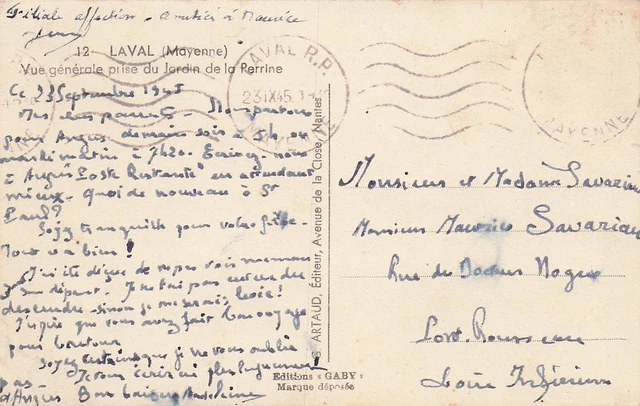 Filiale affection - amitiés à Maurice
12 LAVAL (Mayenne)
Vue générale prise du Jardin de la Perrine
LAVAL R.P.
23 IX 45
MAYENNE
MAYENNE
Ce 23 Septembre 1945
Mes chers parents - Nous partons
pour Angers demain soir à 5h ou
mardi matin à 7h20. Ecrivez-nous
à Angers "Poste Restante" en attendant
mieux. Quoi de nouveau à St
Paul?
Soyez tranquille pour votre fille.
Tout va bien!
J'ai été déçue de ne pas vous
départ. Je ne fai pas
descendre sinon je me serais levée!
J'espère que vous avez fait bon voyage
pour
Soyez certains que je ne vous oublie
pas - Je vous écrirai plus longuement
d'Angers Bons baisers
S. ARTAUD, Éditeur, Avenue de la Close, Nantes
Editions « GABY »
Marque déposée
Monsieur et Madame Savariau
Monsieur Maurice Savariau
Rue du Docteur
Port Rousseau
Loire Inférieure